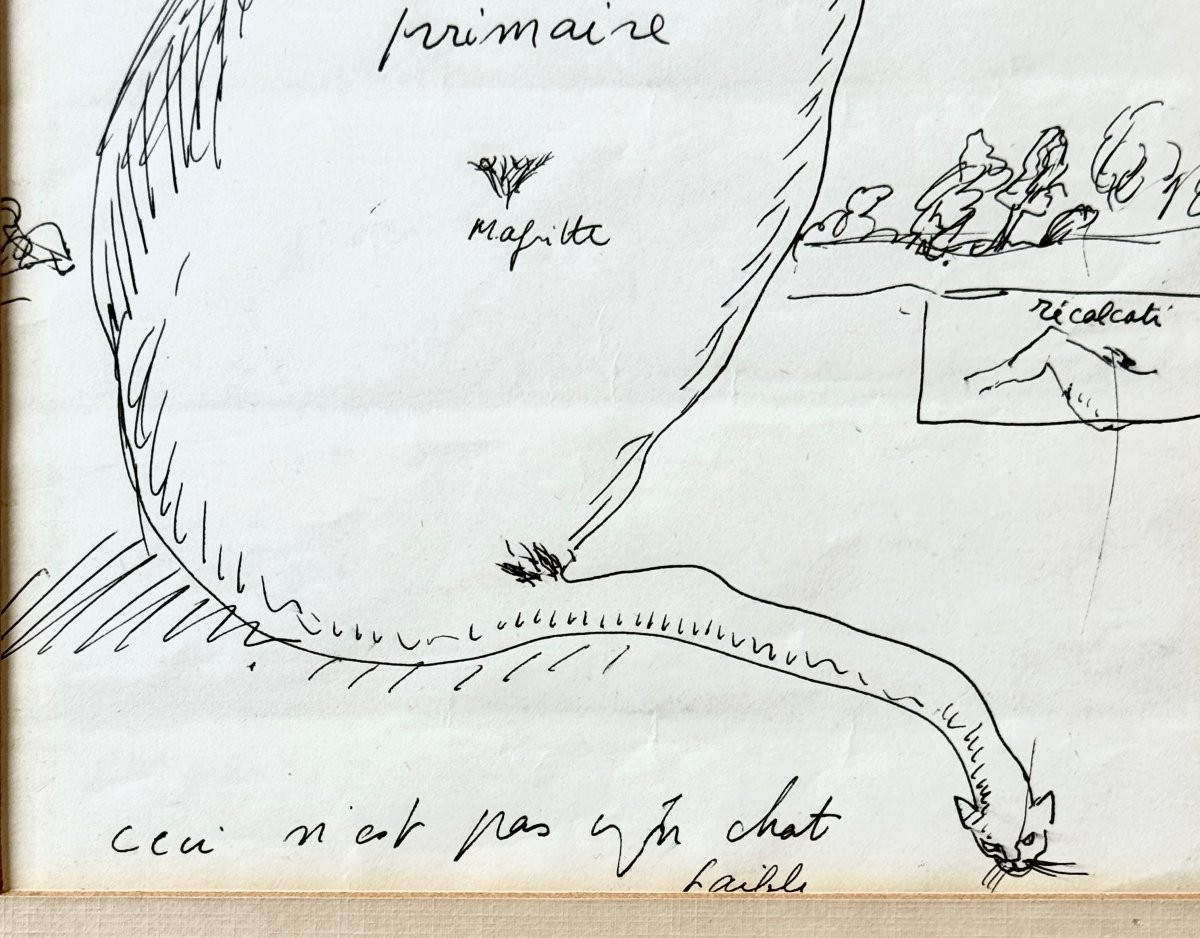 primaire
Magritte
récalcati
ceci n'est pas un chat